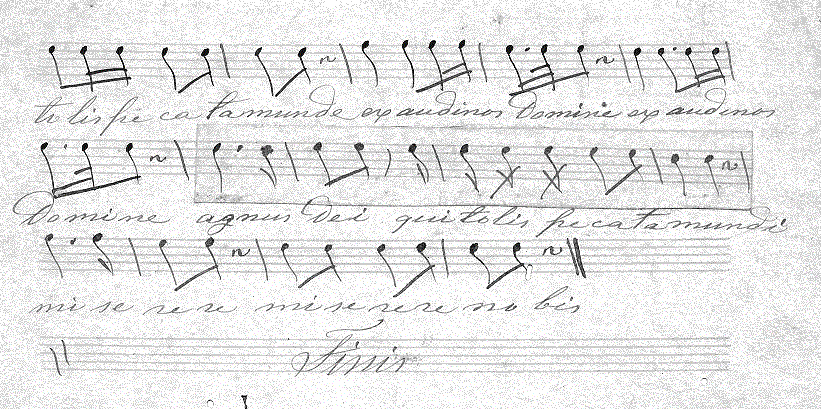 to lis pe ca ta munde ex audi nos Domine ex audi nos
Domine agnus Dei qui tolis pe ca ta mundi
mi se re re mi se re re no bis
Finis